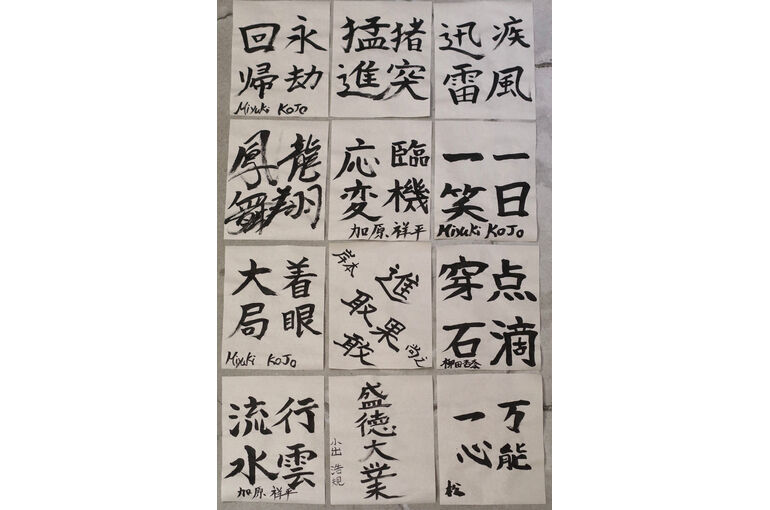 永劫
回帰
Miyuki KoJo
猪突
猛進
疾風
迅雷
龍翔
鳳舞
臨機
応変
加原祥平
一日
一笑
Miyuki KoJo
着眼
大局
Miyuki KoJo
進取
果敢
岸本
尚之
点滴
穿石
柳田
行雲
流水
加原祥平
盛徳大業
小出 浩規
万能
一心
松